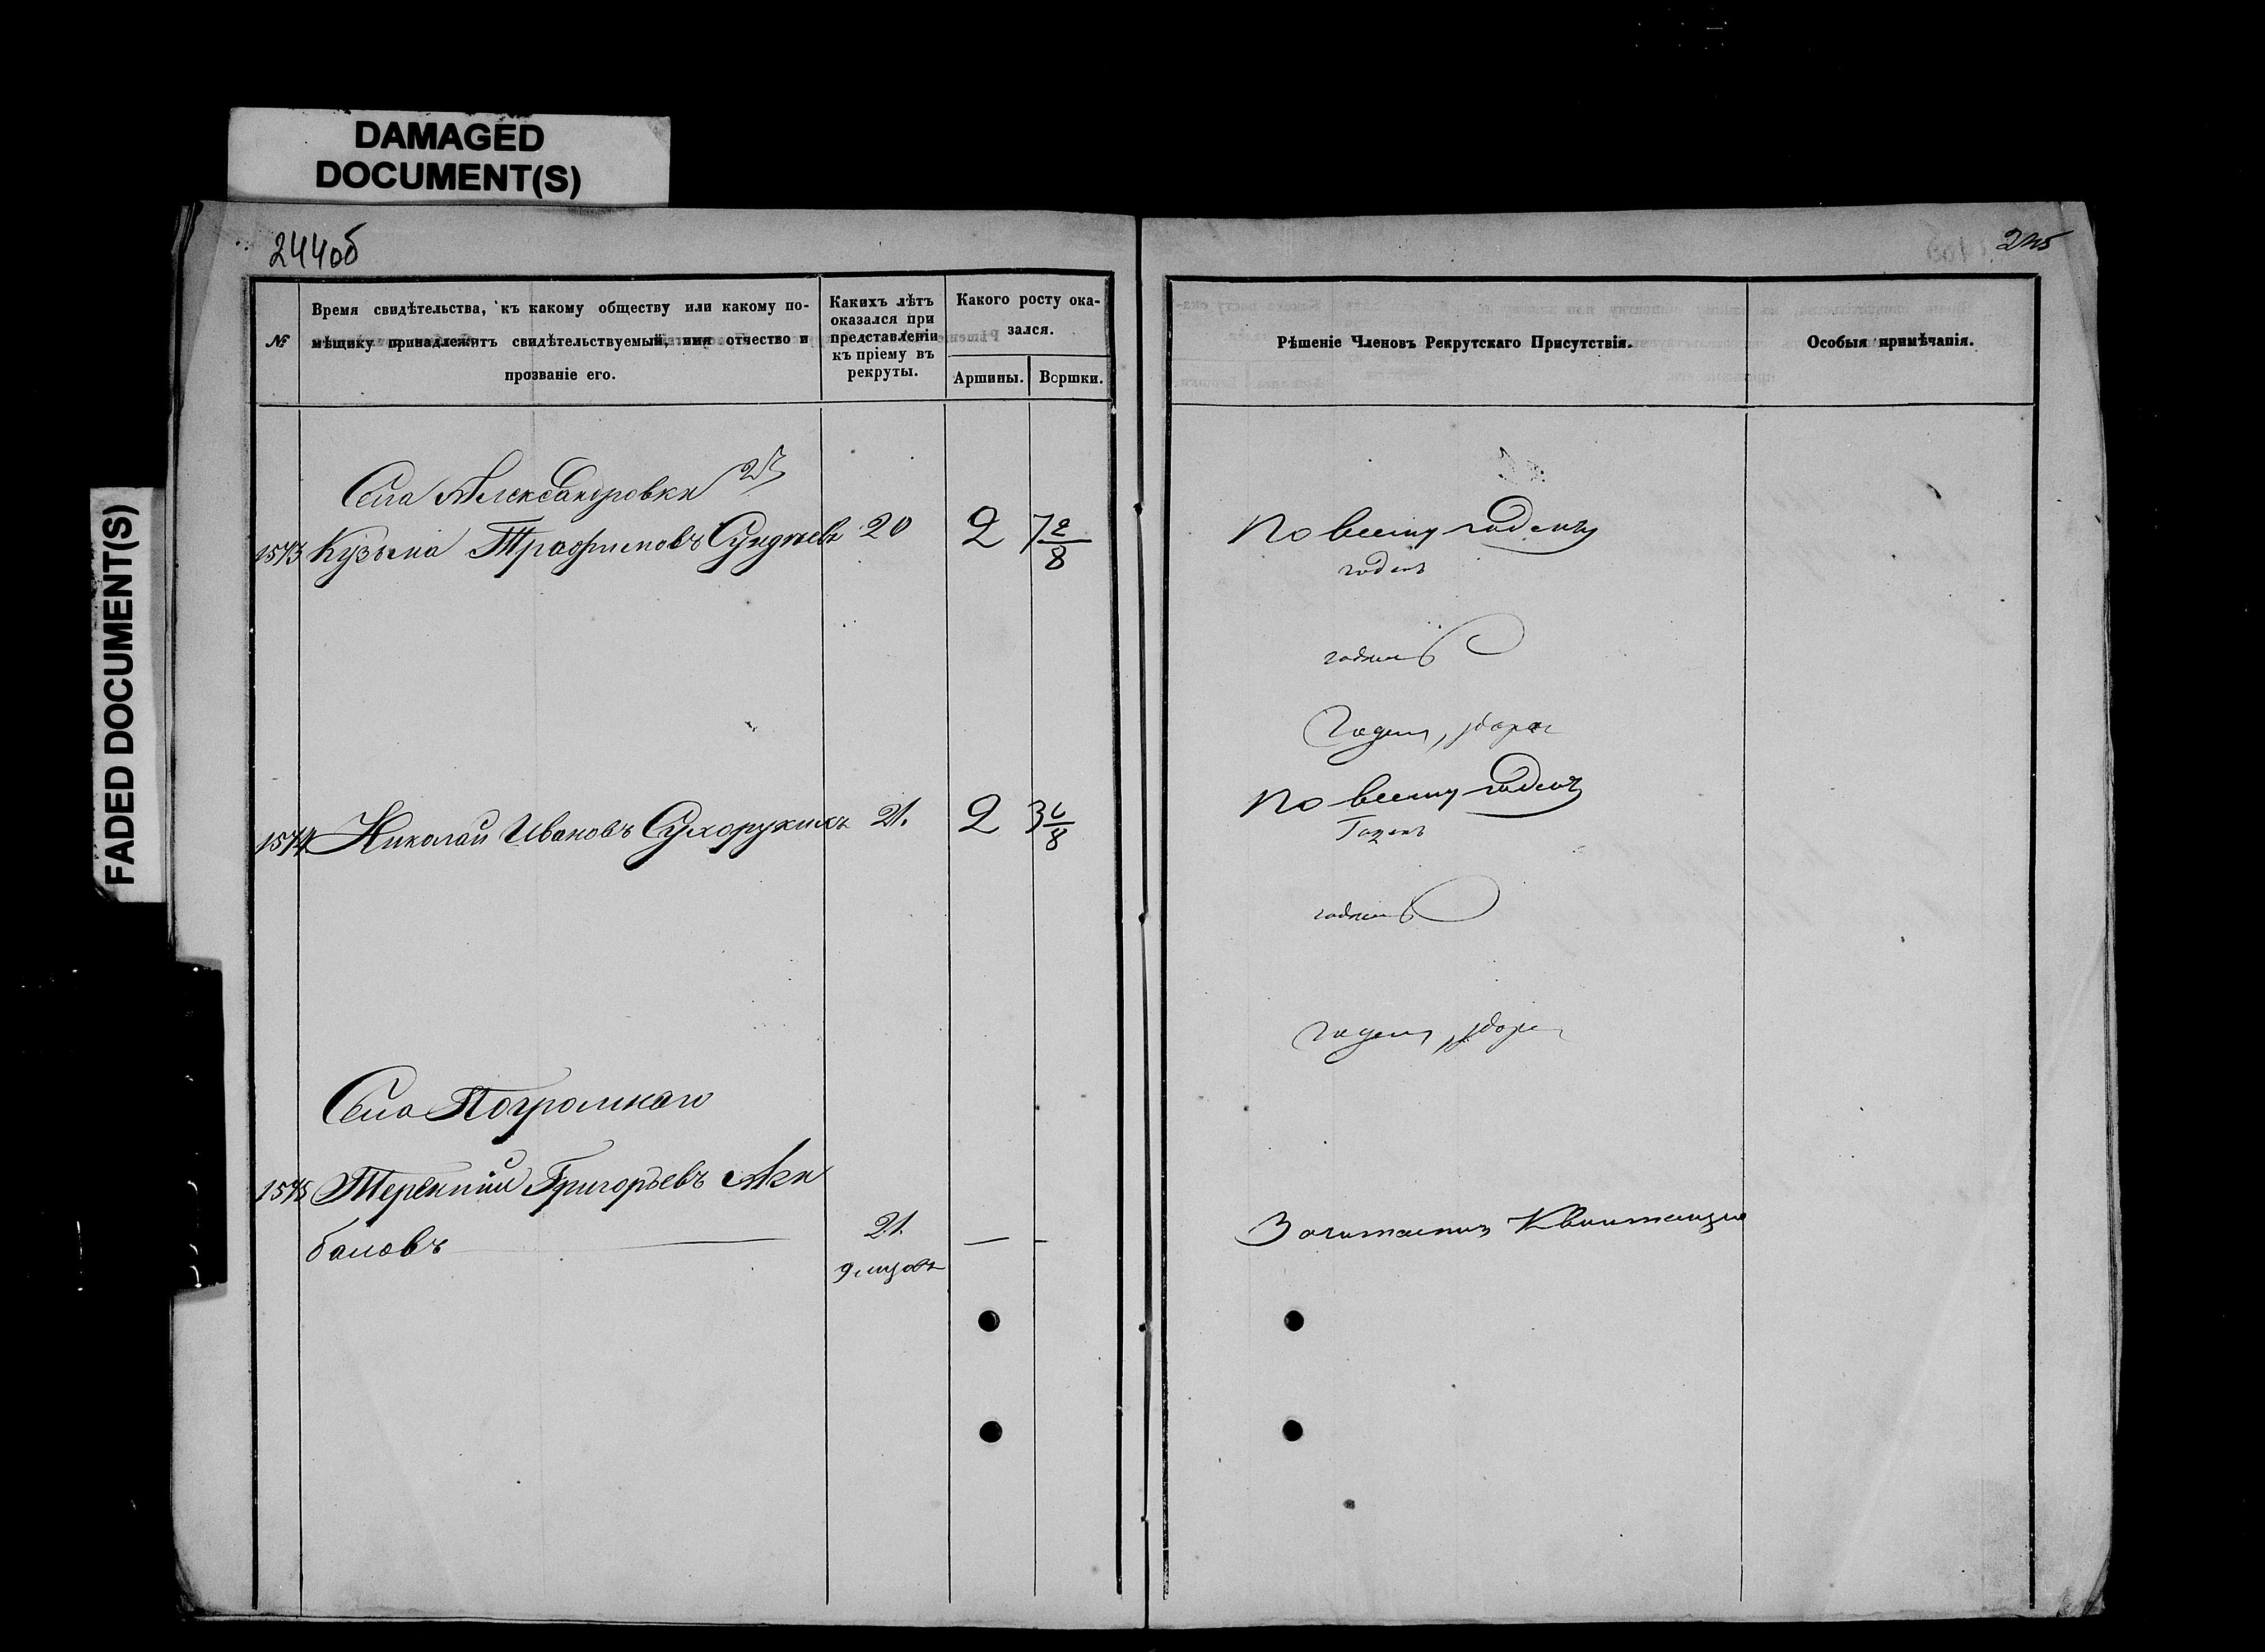 DAMAGED
DOCUMENT(S)
FADED DOCUMENT(S)
244об
245
№
Время свидѣтельства, къ какому обществу или какому по-
мѣщику принадлежитъ свидѣтельствуемый, имя отчество и
прозваніе его.
Какихъ лѣтъ
оказался при
представленіи
къ пріему въ
рекруты.
Какого росту ока-
зался.
Аршины.
Вершки.
Рѣшеніе Членовъ Рекрутскаго Присутствія.
Особыя примѣчанія.
Села Александровки
1573 Кузьма Трафимовъ 20 2 7 2/8
По всему годенъ
годенъ
годенъ
Годенъ,
1574 Николай Ивановъ Сухорукихъ 21. 2 3 6/8
По всему годенъ
Годенъ
годенъ
годенъ,
Села Погромнаго
1575 Терентий Григорьевъ Ака
бановъ 21.
Зачитается Квитанция